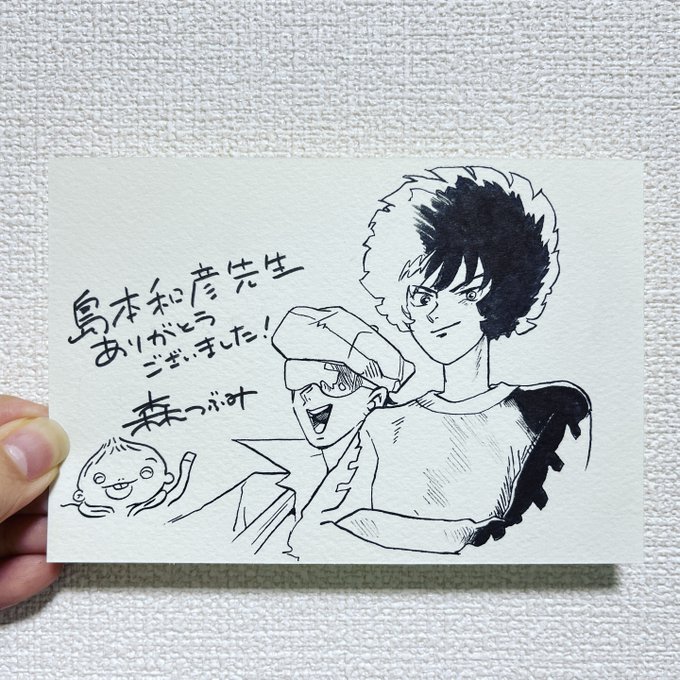 島本和彦先生
ありがとう
ございました!
森つぶみ